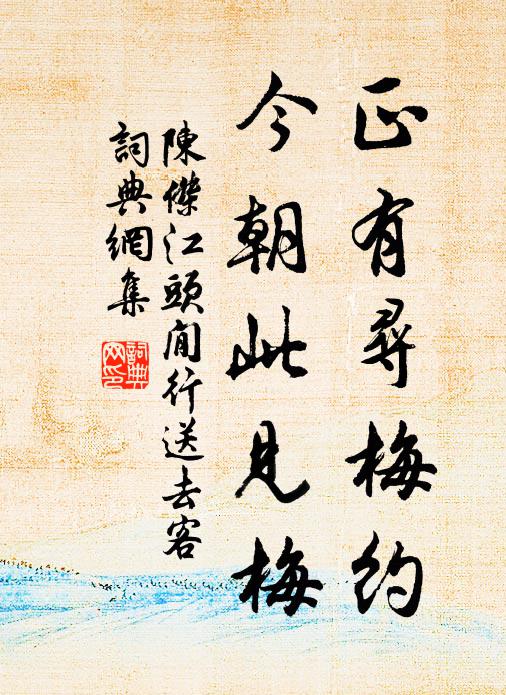 正有尋梅約
今朝此見梅
陳傑江頭閒行送去客
詞典網集
詞典網印